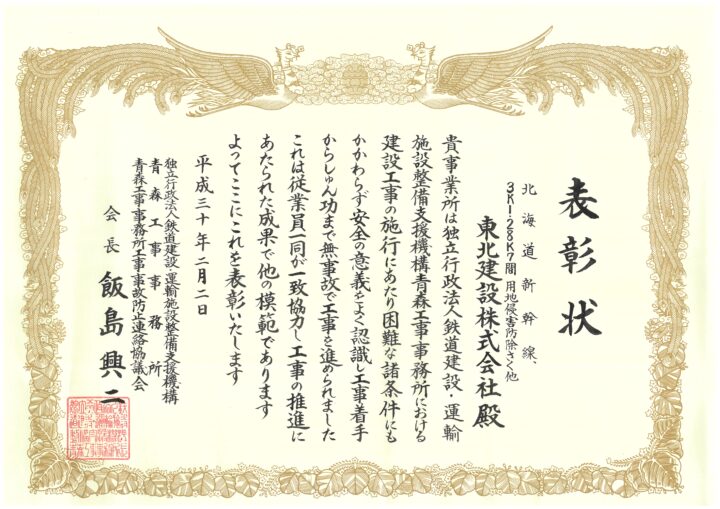 表彰状
北海道新幹線、
3K1~28K7間 用地侵害防除さく他
東北建設株式会社 殿
貴事業所は独立行政法人鉄道建設・運輸
施設整備支援機構青森工事事務所における
建設工事の施行にあたり困難な諸条件にも
かかわらず安全の意義をよく認識し工事着手
からしゅん功まで無事故で工事を進められました
これは従業員一同が一致協力し工事の推進に
あたられた成果で他の模範であります
よってここにこれを表彰いたします
平成三十年二月二日
独立行政法人鉄道建設・運輸施設整備支援機構
青森工事事務所
青森工事事務所工事事故防止連絡協議会
会長 飯島興二